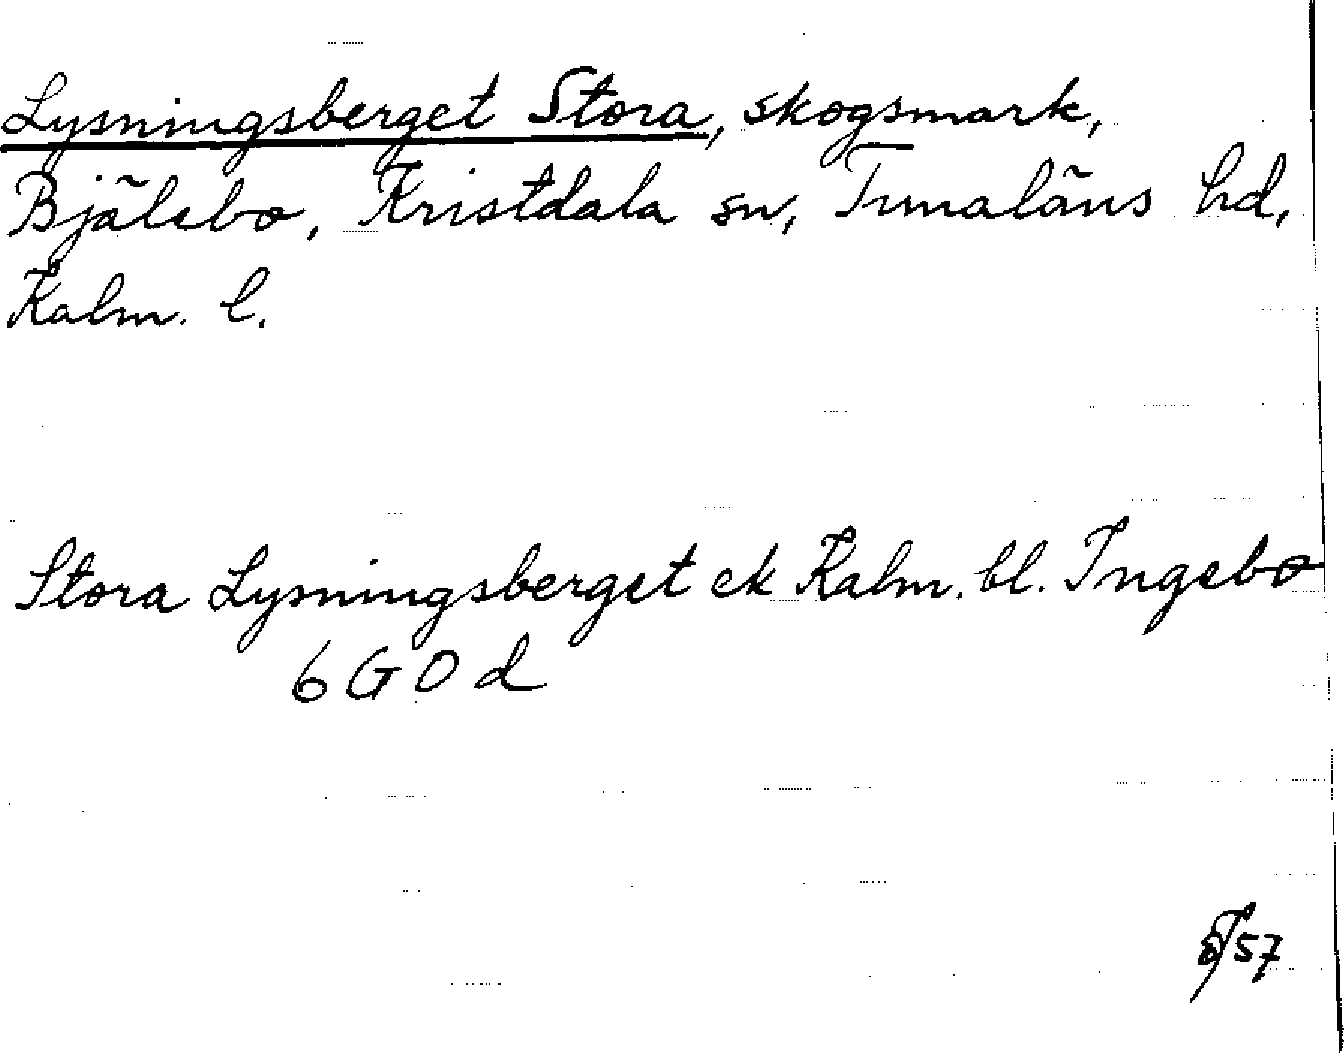 Lysningsberget Stora, skogsmark,
Bjälebo, Kristdala sn, Tunaläns hd,
Kalm. l.
Stora Lysningsberget ek Kalm. bl. Ingebo
6 G O d
57